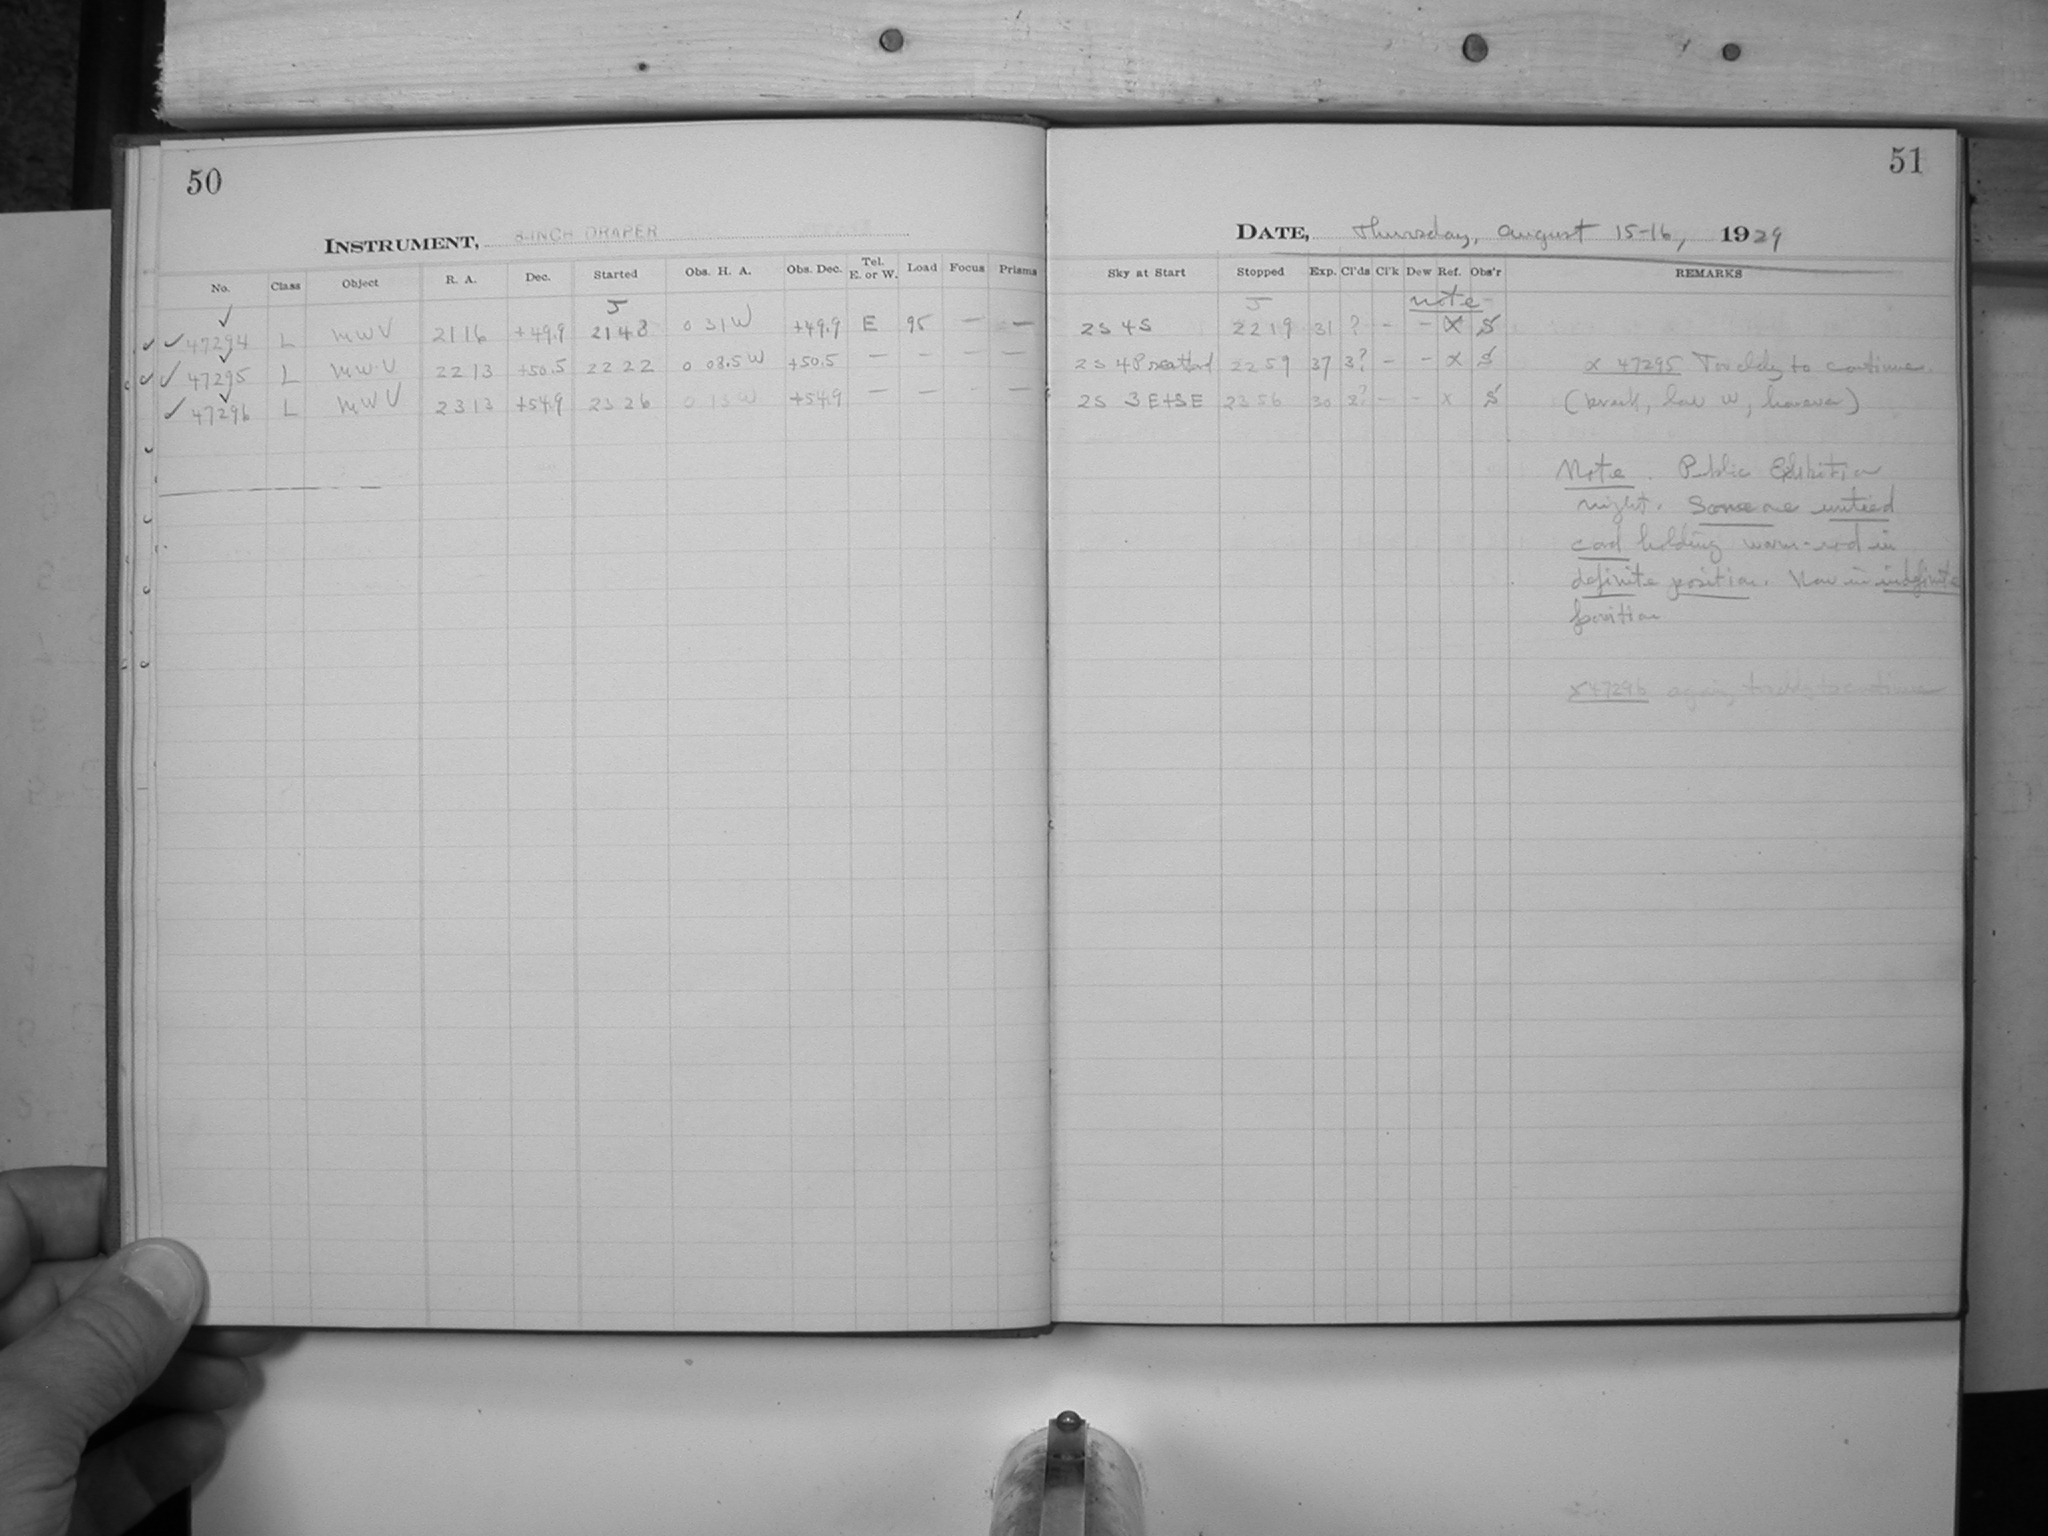 50
INSTRUMENT, 8-INCH DRAPER
No. Class Object R. A. Dec. Started Obs. H. A. Obs. Dec. Tel. E. or W. Load Focus Prisms
J
47294 L MWV 21 16 +49.9 21 48 0 31 W +49.9 E 95 — —
47295 L MWV 22 13 +50.5 22 22 0 08.5 W +50.5 — — — —
47296 L MWV 23 13 +54.9 23 26 0 13 W +54.9 — — - —
51
DATE, Thursday, August 15-16, 1929
Sky at Start Stopped Exp. Cl'ds Cl'k Dew Ref. Obs'r REMARKS
J note-
2S 4S 22 19 31 ? - - X S
2S 4P 22 59 37 3? - - X S x 47295 Too cldy to continue.
2S 3 E+SE 23 56 30 2? - - X S (break, low W, however)
Note. Public Exhibition
night. Someone untied
cord holding worm-rod in
definite position. Now in indefinite
position
x 47296 again, too cldy to continue